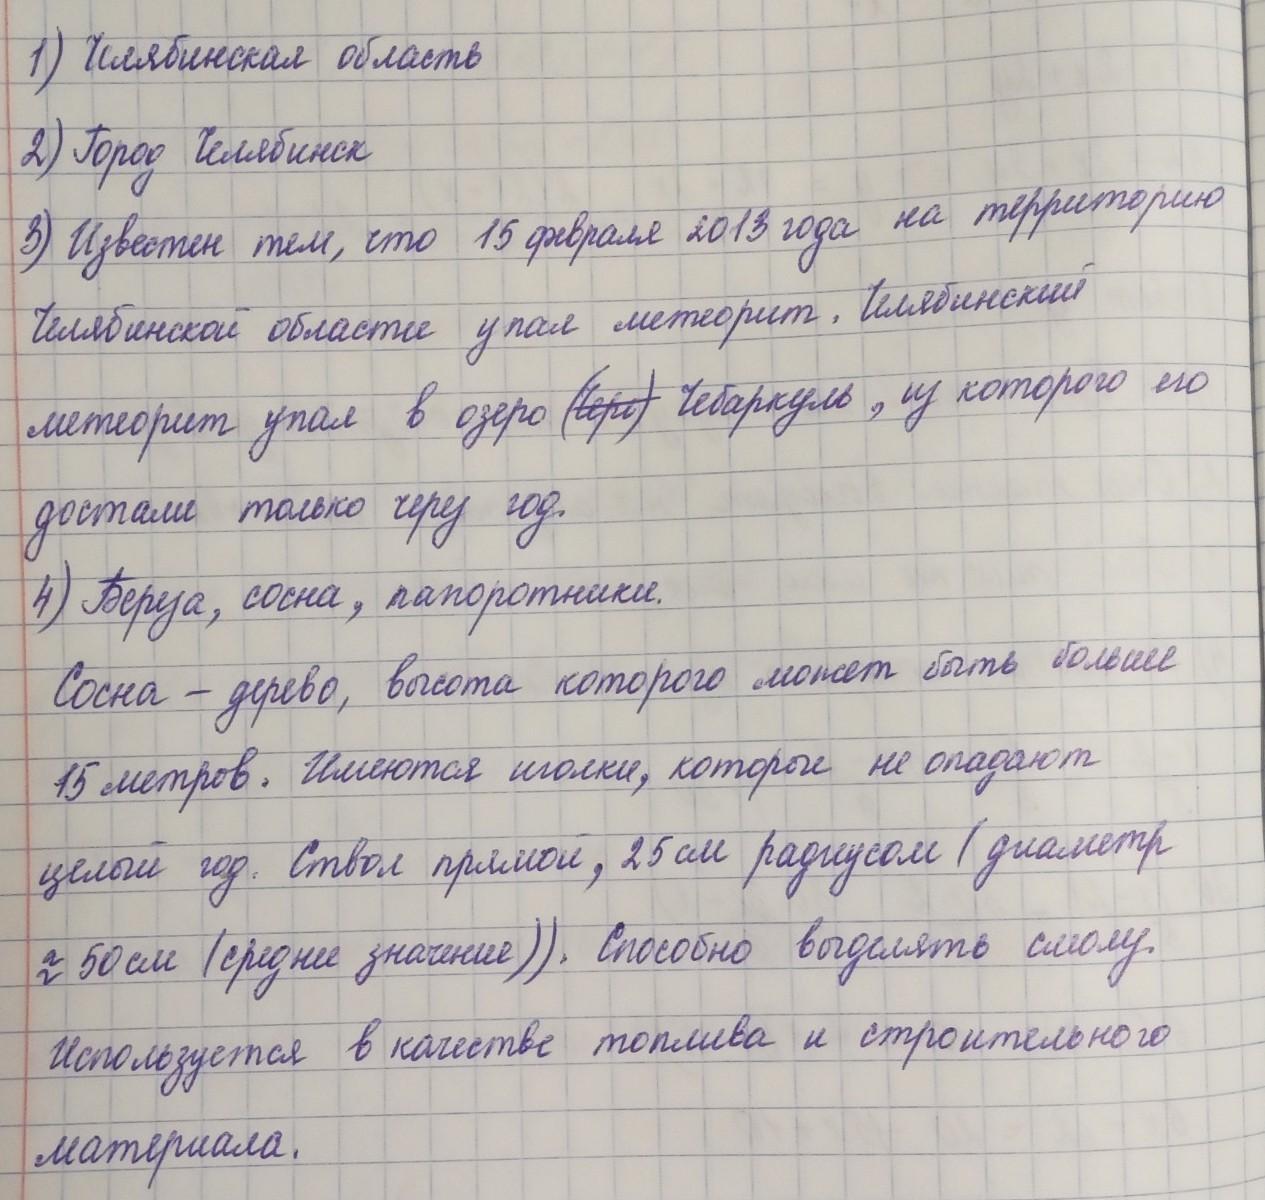 1) Челябинская область
2) Город Челябинск
3) Известен тем, что 15 февраля 2013 года на территорию
Челябинской области упал метеорит. Челябинский
метеорит упал в озеро Чебаркуль, из которого его
достали только через год.
4) Береза, сосна, папоротники.
Сосна – дерево, высота которого может быть больше
15 метров. Имеются иголки, которые не опадают
целый год. Ствол прямой, 25 см радиусом (диаметр
≈ 50 см (среднее значение)). Способно выделять смолу.
Используется в качестве топлива и строительного
материала.